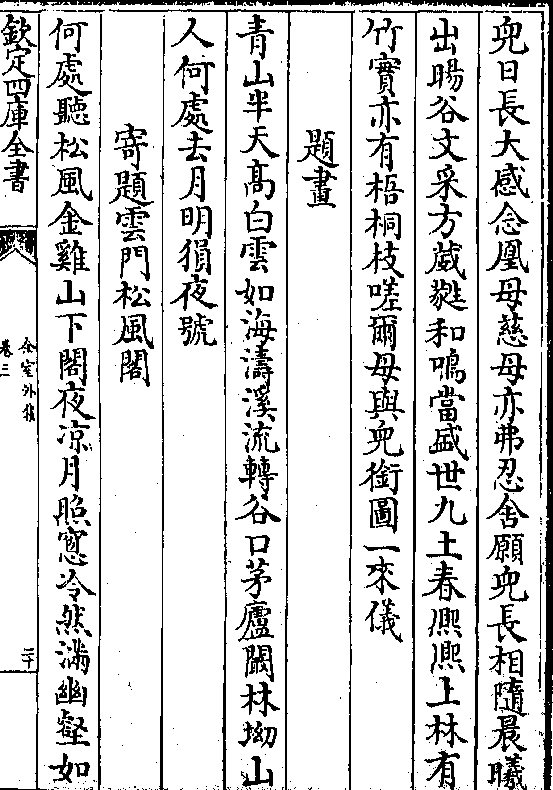 兒日長大感念凰母慈母亦弗忍舍願兒長相隨晨曦
出暘谷文采方葳蕤和鳴當盛世九土春熈熈上林有
竹實亦有梧桐枝嗟爾母與兒銜圖一來儀
題畫
青山半天髙白雲如海濤溪流轉谷口茅廬闞林坳山
人何處去月明猿夜號
寄題雲門松風閣
何處聽松風金雞山下閣夜凉月照窻冷然滿幽壑如
欽定四庫全書
全室外集
卷三
三十